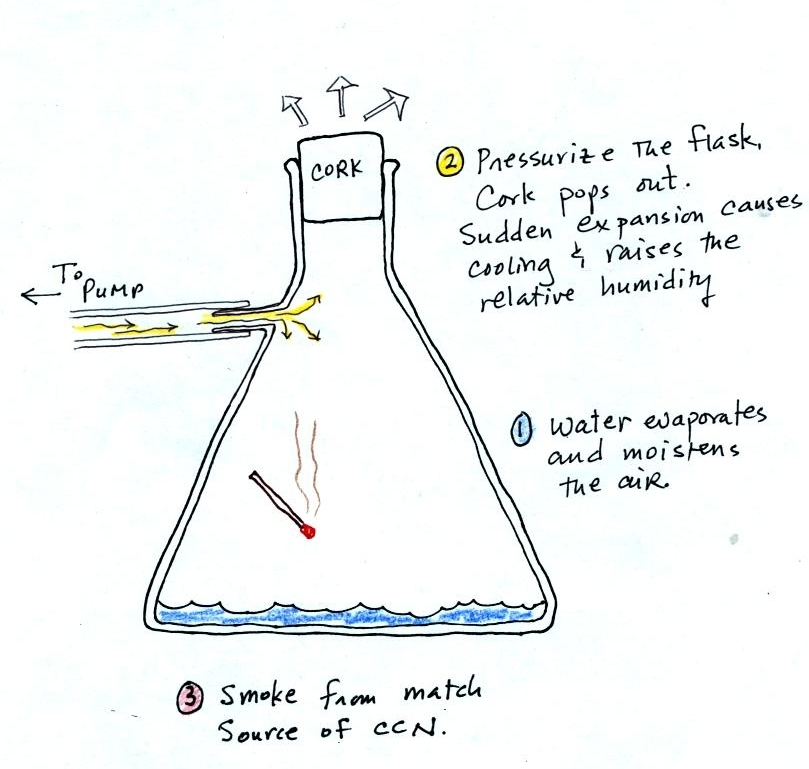 CORK
② Pressurize The flask,
Cork pops out.
Sudden expansion causes
cooling & raises the
relative humidity
To
PUMP
① Water evaporates
and moistens
the air.
③ Smoke from match
Source of CCN.